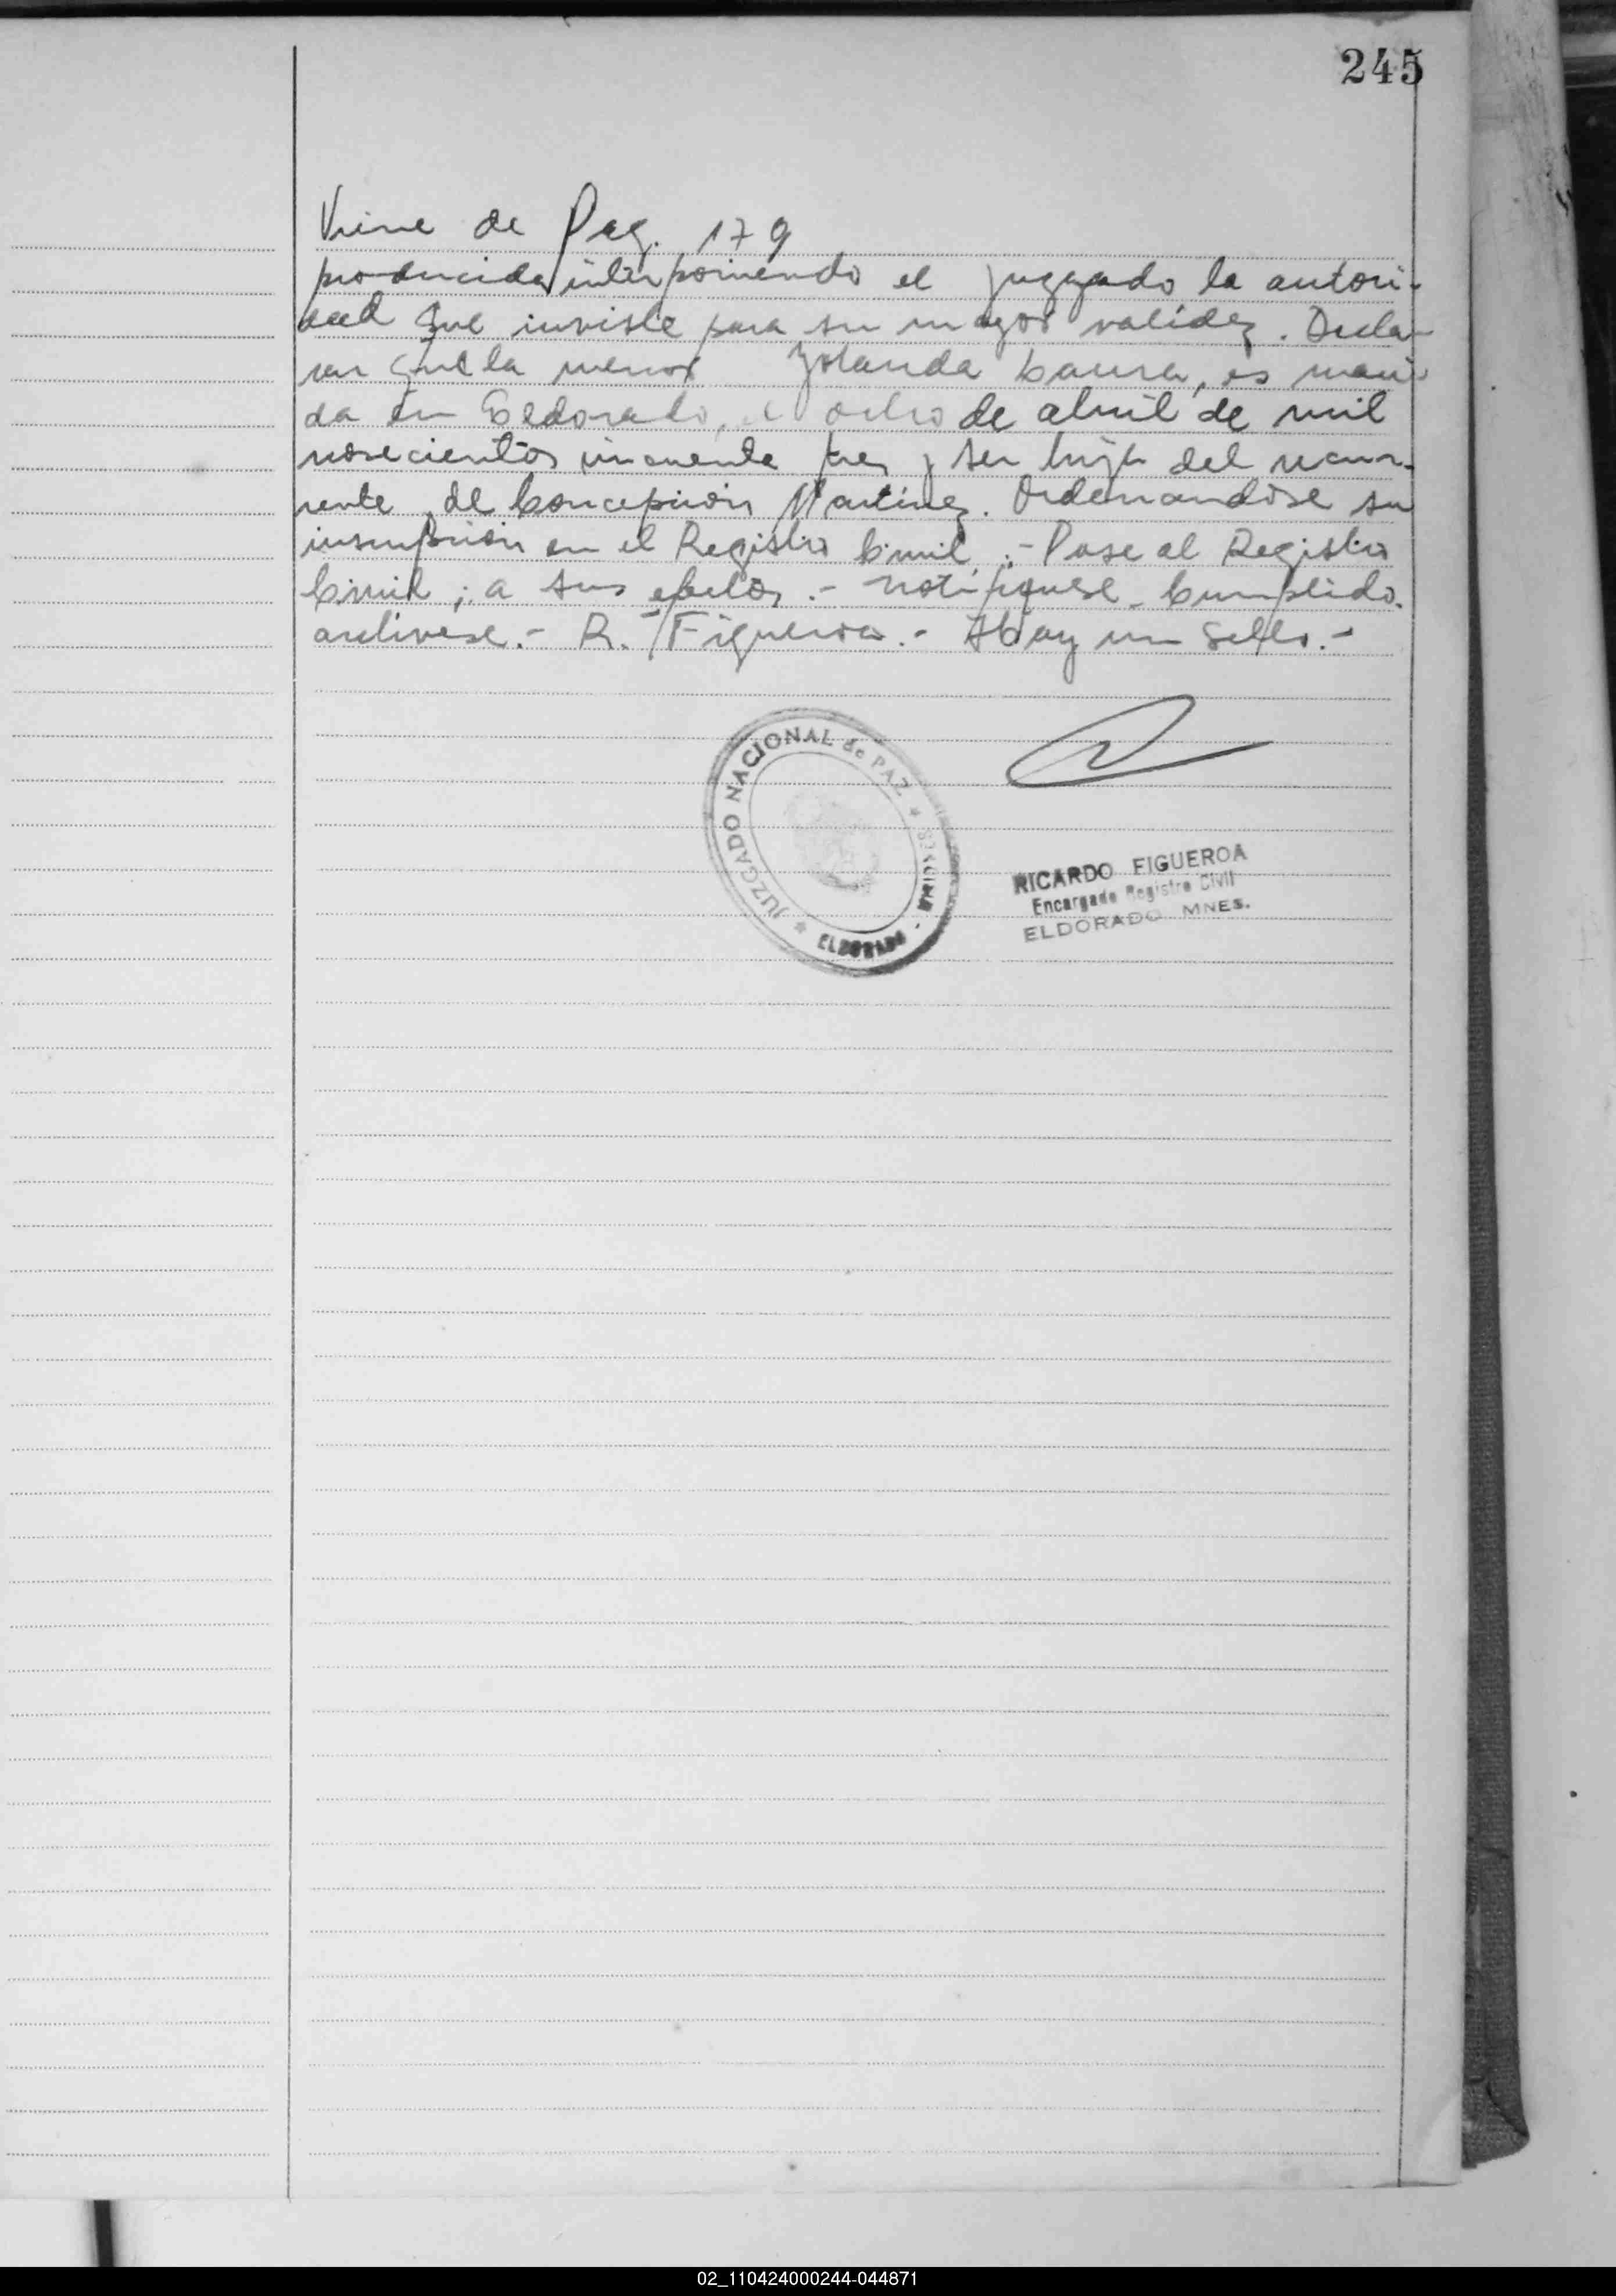 245
Viene de Pag. 179
producida interponiendo el juzgado la autori-
dad que inviste para su mayor validez. Decla-
rar que la menor Yolanda, es naci-
da en Eldorado, el ocho de abril de mil
novecientos cincuenta tres y ser hija del recur-
rente, de Concepción Martinez. Ordenandose su
inscripción en el Registro Civil.- Pase al Registro
Civil; a sus efectos.- notifiquese. Cumplido.
archivese.- R. Figueroa.- Hay un Sello.-
JUZGADO NACIONAL de PAZ * ELDORADO - MISIONES *
RICARDO FIGUEROA
Encargado Registro Civil
ELDORADO MNES.
02_110424000244-044871